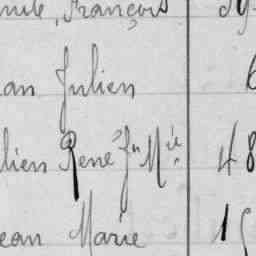 François
an Julien 6
lien René Jn Mie 48
ean Marie 1